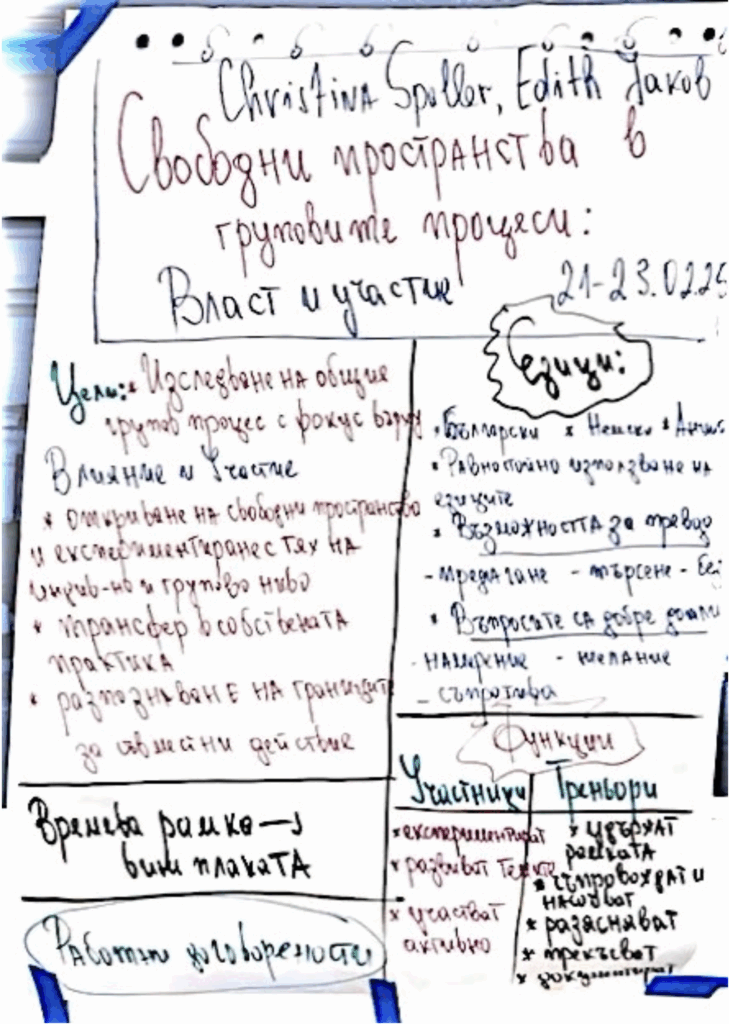 Christina Spaller, Edith Jakob
Свободни пространства в
груповите процеси:
Власт и участие 21-23.02.25
Цели: * Изследване на общия
групов процес с фокус върху
Влияние и Участие
* откриване на свободни пространства
и експериментиране с тях на
индив-но и групово ниво
* трансфер в собствената
практика
* разпознаване на границите
за съвместни действие
Времева рамка →
виж плаката
Работни договорености
Езици:
* Български * Немски *
* Равностойно използване на
езиците
* Възможността за превод
- предлагане - търсене -
* Въпросите са добре дошли
- намерение - желание
- съпротива
Функции
Участници
* експериментират
* развиват темите
* участват
активно
Треньори
* удържат
рамката
* съпровождат и
насочват
* разясняват
* прекъсват
* документират